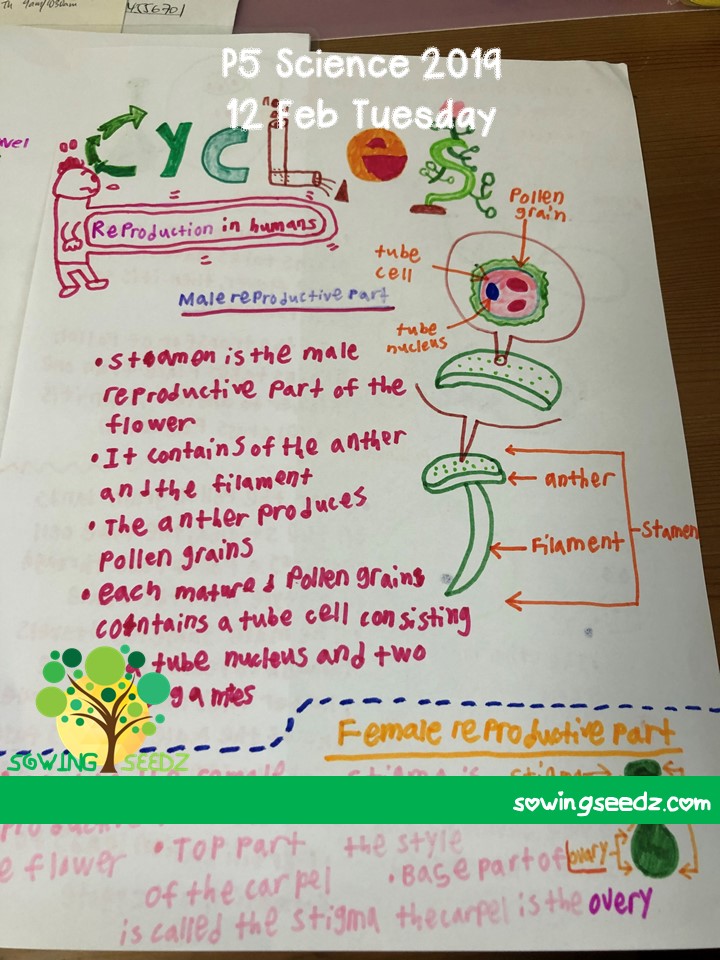 Tu 9am/1030am
4556701
P5 Science 2019
12 Feb Tuesday
CYCLES
Reproduction in humans
Male reproductive part
• stamen is the male
reproductive part of the
flower
• It contains of the anther
and the filament
• The anther produces
pollen grains
• each matured pollen grains
contains a tube cell consisting
tube nucleus and two
gametes
Pollen
grain
tube
cell
tube
nucleus
anther
Filament
Stamen
Female reproductive part
SOWING SEEDZ
stigma is
stigma
sowingseedz.com
e flower
• TOP part
of the carpel
is called the stigma
the style
• Base part of
the carpel is the overy
ovary